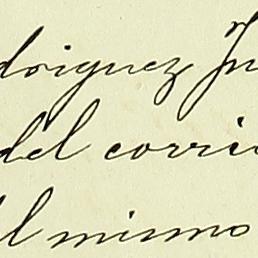 driguez Ju
del corri
del mismo